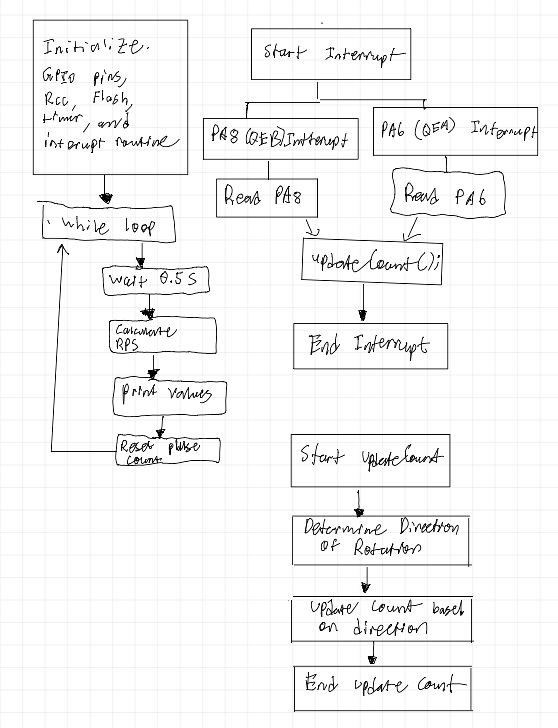 Initialize.
GPIO pins,
Rcc, Flash,
timer, and
interrupt routine
while loop
wait 0.5s
Calculate
RPS
print values
Reset pulse
count
Start Interrupt
PA8 (QEB) Interrupt
PA6 (QEA) Interrupt
Read PA8
Read PA6
updateCount();
End Interrupt
Start updateCount
Determine Direction
of Rotation
update count based
on direction
End update count